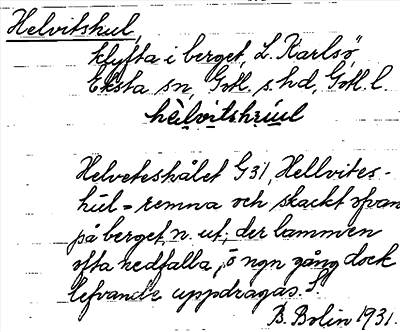 Helvitshul,
klyfta i berget, L. Karlsö,
Eksta sn, Gotl. s. hd, Gotl. l.
hèlvitshṛúul
Helveteshålet G31, Hellvites-
húl = remna och skackt ofvan
på berget, n. ut; der lammen
ofta nedfalla, o ngn gång dock
lefvande uppdragas. S
B. Bolin 1931.